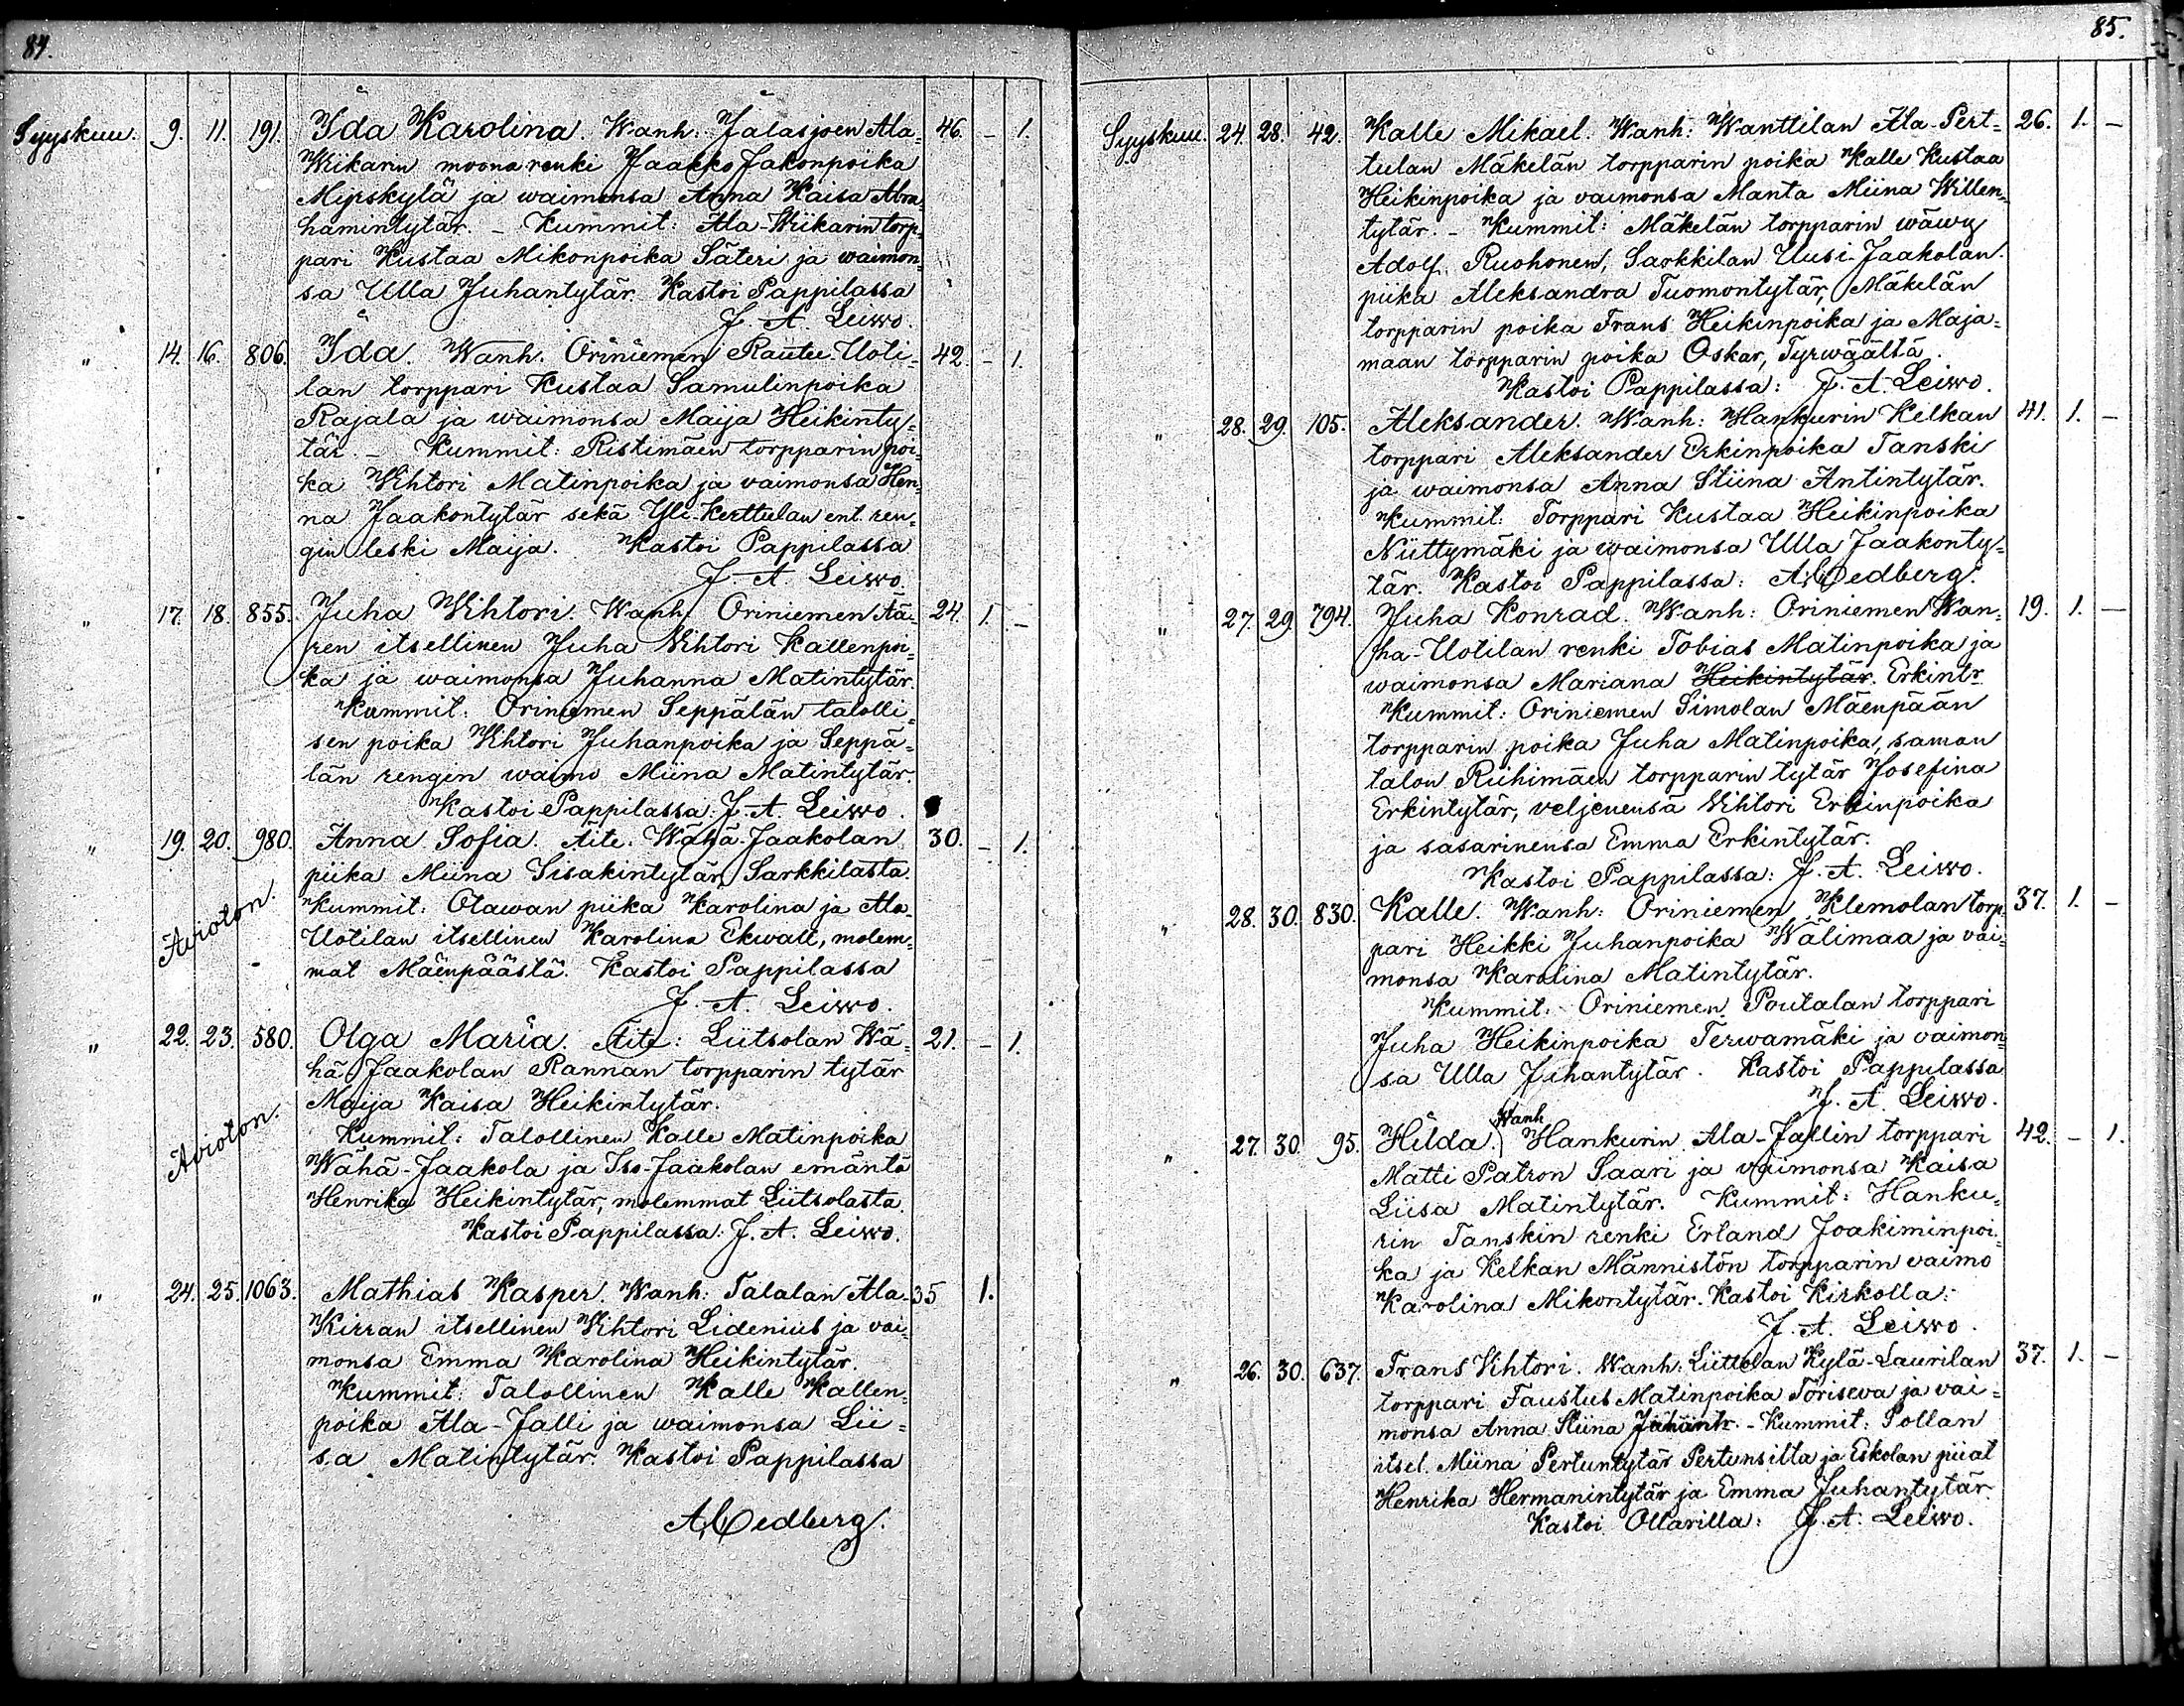 84.
Syyskuu. 9. 11. 191. Ida Karolina. Wanh: Jalasjoen Ala- 46. – 1.
Wiikarin moona renki Jaakko Jakonpoika
Myrskylä ja waimonsa Anna Kaisa Abra-
hamintytär. – Kummit: Ala-Wiikarin torp-
pari Kustaa Mikonpoika Säteri ja waimon-
sa Ulla Juhantytär. Kastoi Pappilassa
J. A. Leiwo.
" 14. 16. 806. Ida. Wanh. Oriniemen Rautee-Uoti- 42. – 1.
lan torppari Kustaa Samulinpoika
Rajala ja waimonsa Maija Heikinty-
tär. – Kummit: Ristimäen torpparin poi-
ka Wihtori Matinpoika ja vaimonsa Hen-
na Jaakontytär sekä Yli-Kerttulan ent. ren-
gin leski Maija. Kastoi Pappilassa
J. A. Leiwo.
" 17. 18. 855. Juha Wihtori. Wanh. Oriniemen Ää- 24. 1. –
ren itsellinen Juha Vihtori Kallenpoi-
ka ja waimonsa Juhanna Matintytär.
Kummit: Oriniemen Seppälän talolli-
sen poika Vihtori Juhanpoika ja Seppä-
län rengin waimo Miina Matintytär.
Kastoi Pappilassa: J. A. Leiwo.
" 19. 20. 980. Anna Sofia. Äite: Wähä-Jaakolan 30. – 1.
piika Miina Iisakintytär, Sarkkilasta.
Avioton. Kummit: Otawan piika Karolina ja Ala-
Uotilan itsellinen Karolina Ekwall, molem-
mat Mäenpäästä. Kastoi Pappilassa
J. A. Leiwo.
" 22. 23. 580. Olga Maria. Äite: Liitsolan Wä- 21. – 1.
hä-Jaakolan Rannan torpparin tytär
Maija Kaisa Heikintytär.
Avioton. Kummit: Talollinen Kalle Matinpoika
Wähä-Jaakola ja Iso-Jaakolan emäntä
Henrika Heikintytär, molemmat Liitsolasta.
Kastoi Pappilassa: J. A. Leiwo.
" 24. 25. 1063. Mathias Kasper. Wanh: Talalan Ala- 35 1.
Kirran itsellinen Wihtori Lidenius ja vai-
monsa Emma Karolina Heikintytär.
Kummit: Talollinen Kalle Kallen-
poika Ala-Jalli ja waimonsa Lii-
sa Matintytär. Kastoi Pappilassa
A. Cedberg.
85.
Syyskuu. 24. 28. 42. Kalle Mikael. Wanh: Wanttilan Ala-Pert- 26. 1. –
tulan Mäkelän torpparin poika Kalle Kustaa
Heikinpoika ja vaimonsa Manta Miina Willen-
tytär. – Kummit: Mäkelän torpparin wäwy
Adolf Ruohonen, Sarkkilan Uusi-Jaakolan
piika Aleksandra Tuomontytär, Mäkelän
torpparin poika Frans Heikinpoika ja Maja-
maan torpparin poika Oskar, Tyrwäältä.
Kastoi Pappilassa: J. A. Leiwo.
" 28. 29. 105. Aleksander. Wanh: Hankurin Kelkan 41. 1. –
torppari Aleksander Erkinpoika Tanski
ja waimonsa Anna Stiina Antintytär.
Kummit: Torppari Kustaa Heikinpoika
Niittymäki ja waimonsa Ulla Jaakonty-
tär. Kastoi Pappilassa: A. Cedberg.
" 27. 29. 794. Juha Konrad. Wanh: Oriniemen Wan- 19. 1. –
ha-Uotilan renki Tobias Matinpoika ja
waimonsa Mariana Heikintytär. Erkintr.
Kummit: Oriniemen Simolan Mäenpään
torpparin poika Juha Matinpoika, saman
talon Riihimäen torpparin tytär Josefina
Erkintytär, veljenensä Vihtori Erkinpoika
ja sasarinensa Emma Erkintytär.
Kastoi Pappilassa: J. A. Leiwo.
" 28. 30. 830. Kalle. Wanh: Oriniemen Klemolan torp- 37. 1. –
pari Heikki Juhanpoika Wälimaa ja vai-
monsa Karolina Matintytär.
Kummit: Oriniemen Poutalan torppari
Juha Heikinpoika Terwamäki ja vaimon-
sa Ulla Juhantytär. Kastoi Pappilassa
J. A. Leiwo.
" 27. 30. 95. Hilda. Wanh Hankurin Ala-Jallin torppari 42. – 1.
Matti Patron Saari ja vaimonsa Kaisa
Liisa Matintytär. Kummit: Hanku-
rin Tanskin renki Erland Joakiminpoi-
ka ja Kelkan Männistön torpparin vaimo
Karolina Mikontytär. Kastoi Kirkolla:
J. A. Leiwo.
" 26. 30. 637. Frans Vihtori. Wanh: Liitsolan Kylä-Laurilan 37. 1. –
torppari Faustus Matinpoika Töriseva ja vai-
monsa Anna Stiina Juhantr. – Kummit: Pollan
itsel. Miina Pertuntytär Pertunsilta ja Eskolan piiat
Henrika Hermanintytär ja Emma Juhantytär.
Kastoi Ollarilla: J. A. Leiwo.